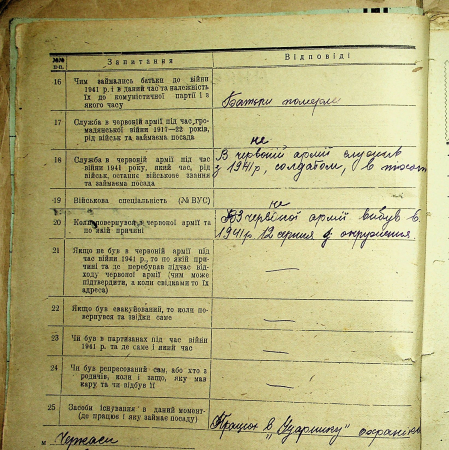 №№ п-п.
Запитання
Відповіді
16
Чим займались батьки до війни
1941 р. і в даний час та належність
їх до комуністичної партії і з
якого часу
Батьки померли
17
Служба в червоній армії під час гро-
мадянської війни 1917—22 років,
рід військ та займаєма посада
не
18
Служба в червоній армії під час
війни 1941 року, який час, рід
військ, останнє військове звання
та займаєма посада
В червоній армії служив
з 1941 р, солдатом, в
19
Військова спеціальність (№ ВУС)
не
20
Коли повернувся з червоної армії та
по якій причині
З червоної армії вибув в
1941 р. 12 серпня з окруження
21
Якщо не був в червоній армії під
час війни 1941 р., то по якій при-
чині та де перебував підчас від-
ходу червоної армії (чим може
підтвердити, а коли свідками то їх
адреса)
—
22
Якщо був евакуйований, то коли по-
вернувся та звідки саме
—
23
Чи був в партизанах під час війни
1941 р. та де саме і який час
—
24
Чи був репресований сам, або хто з
родичів, коли і защо, яку мав
кару та чи відбув її
—
25
Засоби існування в даний момент-
(де працює і яку займає посаду)
Працюю в "Ударнику"
м
Черкаси